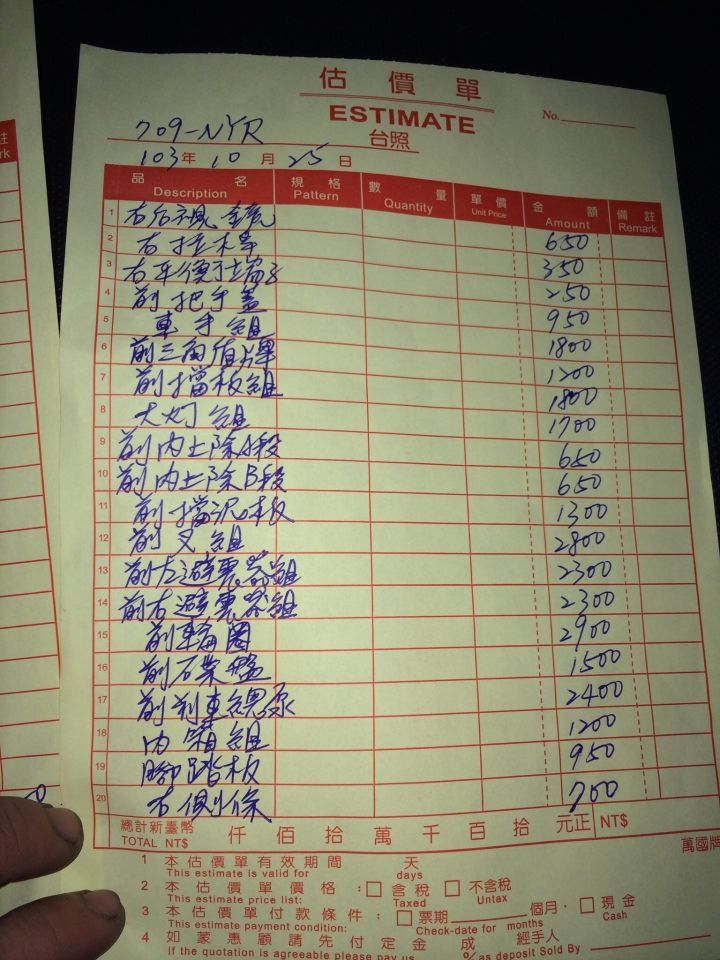 估價單
ESTIMATE
No.
709-NYR
台照
103年10月25日
品名 規格 數量 單價 金額 備註
Description Pattern Quantity Unit Price Amount Remark
1 右后視鏡 650
2 右拉桿 350
3 右車價拉端子 250
4 前把手蓋 950
5 車手組 1800
6 前三角值牌 1200
7 前擋板組 1800
8 大灯組 1700
9 前內土除A段 650
10 前內土除B段 650
11 前擋泥板 1300
12 前叉組 2800
13 前左避震器組 2300
14 前右避震器組 2300
15 前輪圈 2900
16 前碟盤 1500
17 前剎車總泵 2400
18 內箱組 1200
19 腳踏板 950
20 右側條 700
總計新臺幣 仟佰拾萬千百拾元正 NT$
TOTAL NT$
萬國牌
1 本估價單有效期間 天
This estimate is valid for days
2 本估價單價格：□含稅 □不含稅
This estimate price list: Taxed Untax
3 本估價單付款條件：□票期 個月．□現金
This estimate payment condition: Check-date for months Cash
4 如蒙惠顧請先付定金 成 經手人
If the quotation is agreeable please pay us % as deposit Sold By